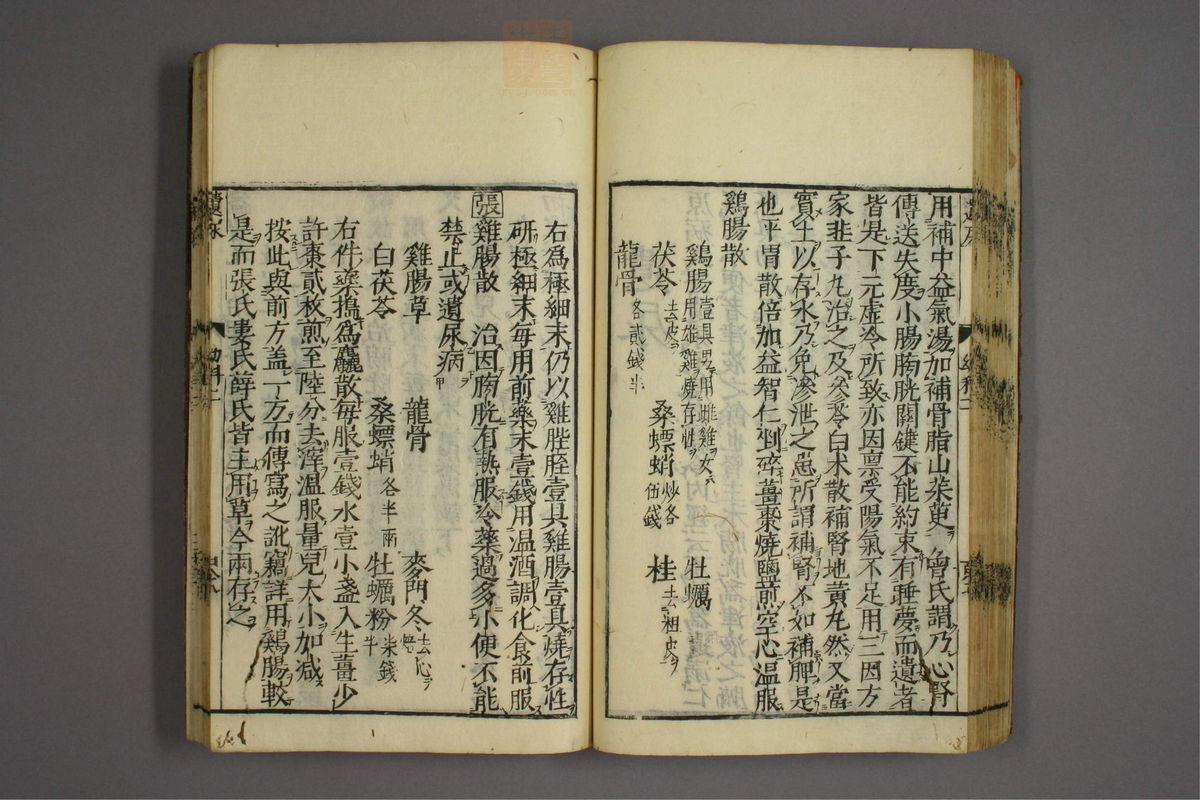 用補中益氣湯加補骨脂山茱萸曾氏謂乃心腎
傳送失度小腸膀胱關鍵不能約束有睡夢而遺者
皆是下元虛冷所致亦因禀受陽氣不足用三因方
家韭子丸治之及參苓白术散補腎地黃丸然又當
實土以存水乃免滲泄之患所謂補腎不如補脾是
也平胃散倍加益智仁剉碎薑棗燒鹽煎空心温服
鷄腸散
鷄腸壹具男用雌雞女用雄雞燒存性 牡蠣
茯苓去皮 桑螵蛸炒各伍錢 桂去粗皮
龍骨各貳錢半
右為極細末仍以雞膍胵壹具雞腸壹具燒存性
研極細末每用前藥末壹錢用温酒調化食前服
張雞腸散 治因膀胱有熱服冷藥過多小便不能
禁止或遺尿病
雞腸草 龍骨 麥門冬去心
白茯苓 桑螵蛸各半兩 牡蠣粉柒錢半
右件藥搗為麤散每服壹錢水壹小盞入生薑少
許棗貳枚煎至陸分去滓温服量兒大小加减
按此與前方盖一方而傳寫之訛竊詳用鷄腸較
是而張氏婁氏薛氏皆主用草今兩存之
遺尿
幼科二